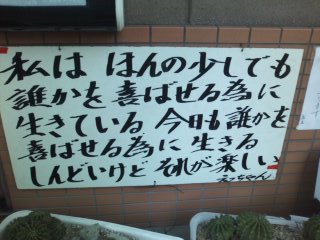 私は ほんの少しでも
誰かを 喜ばせる為に
生きている 今日も誰かを
喜ばせる為に 生きる
しんどいけど それが楽しい
えっちゃん